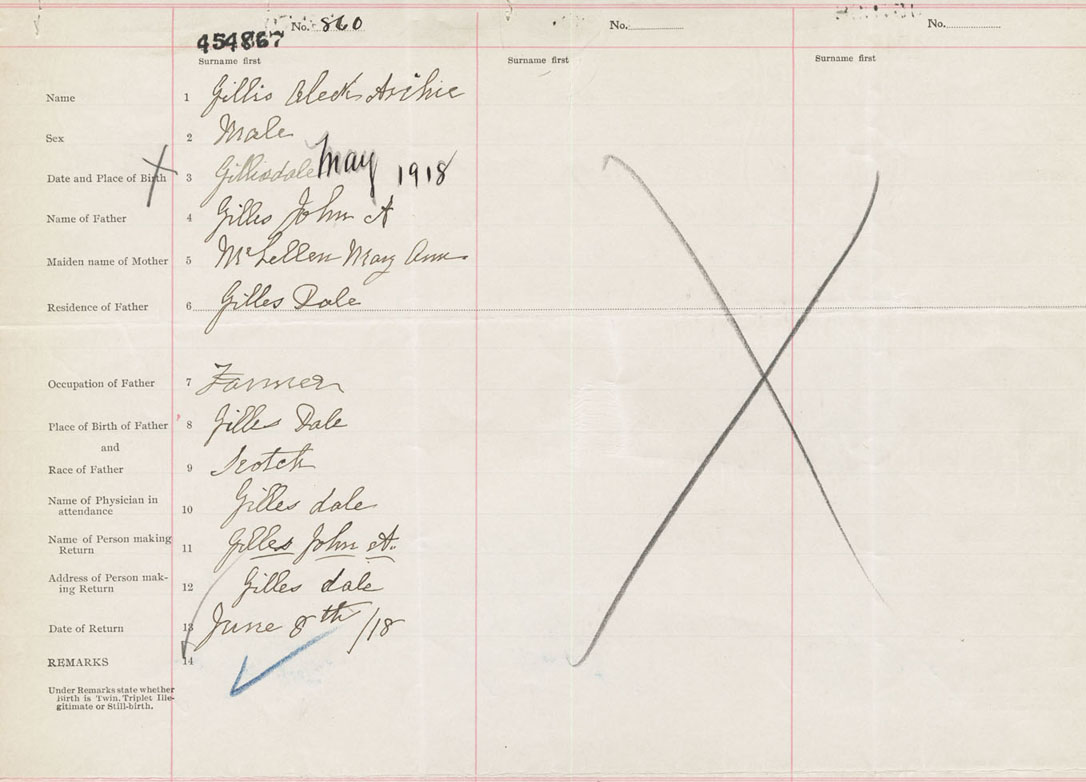 No. 860 No. No.
454867
Surname first Surname first Surname first
Name 1 Gillis Aleck Archie
Sex 2 Male
Date and Place of Birth 3 Gillisdale May 1918
Name of Father 4 Gilles John A
Maiden name of Mother 5 McLellen Mary Ann
Residence of Father 6 Gilles Dale
Occupation of Father 7 Farmer
Place of Birth of Father 8 Gilles Dale
and
Race of Father 9 Scotch
Name of Physician in
attendance 10 Gilles dale
Name of Person making
Return 11 Gilles John A.
Address of Person mak-
ing Return 12 Gilles dale
Date of Return 13 June 8th /18
REMARKS 14
Under Remarks state whether
Birth is Twin, Triplet Ille-
gitimate or Still-birth.